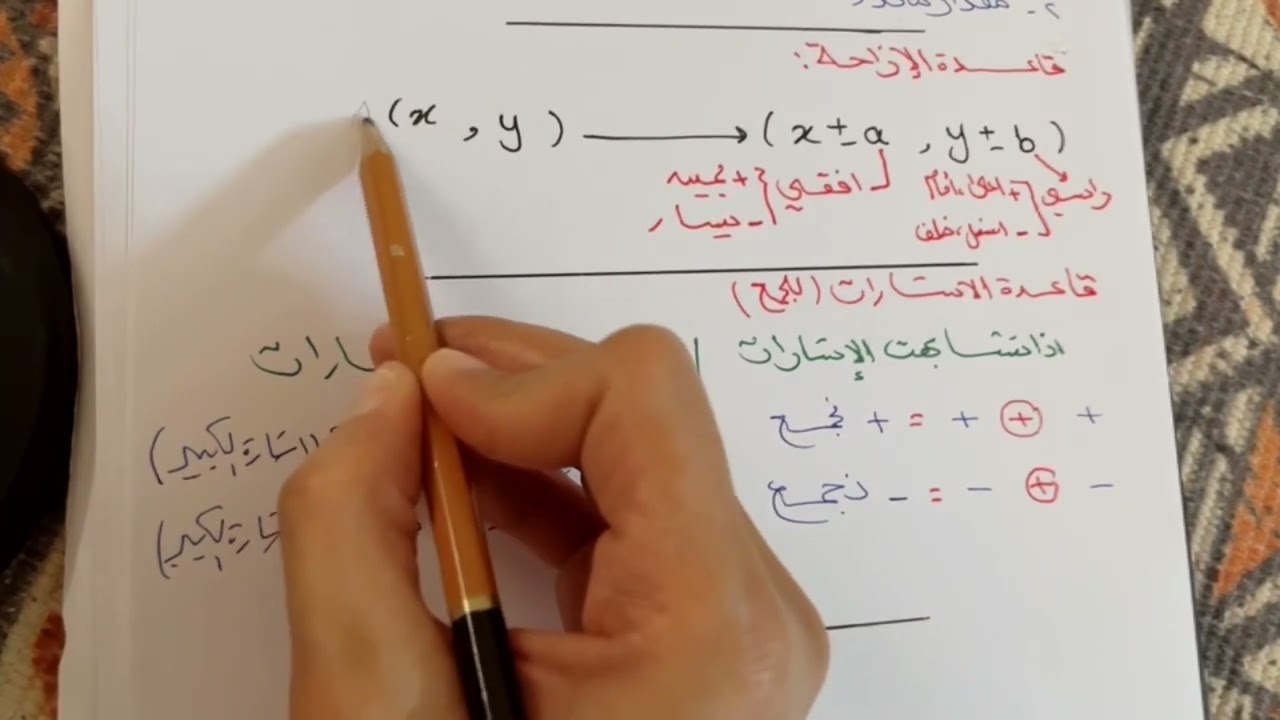 ٢- مقدار
قاعدة الإزاحة:
(x , y) ⟶ (x ± a , y ± b)
افقي { + يمين
- يسار
رأسي { + اعلى، امام
- اسفل، خلف
قاعدة الاشارات (للجمع)
اذا تشابهت الإشارات
+ ⊕ + = + نجمع
- ⊕ - = - نجمع
ارات
اشارة الكبير)
اشارة الكبير)